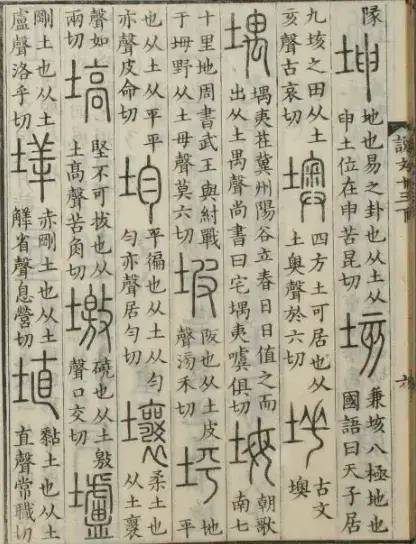 隊坤地也易之卦也从土从申土位在申苦昆切垓兼垓八極地也國語曰天子居
九垓之田从土亥聲古哀切墺四方土可居也从土奧聲於六切古文墺
堣堣夷在冀州陽谷立春日日值之而出从土禺聲尚書曰宅堣夷噳俱切坶朝歌南七
十里地周書武王與紂戰于坶野从土母聲莫六切坡阪也从土皮聲滂禾切坪地平
也从土从平平亦聲皮命切均平徧也从土从勻勻亦聲居勻切壤柔土也从土襄
聲如兩切塙堅不可拔也从土高聲苦角切墽磽也从土敫聲口交切壚
剛土也从土盧聲洛乎切赤剛土也从土觲省聲息營切埴黏土也从土直聲常職切